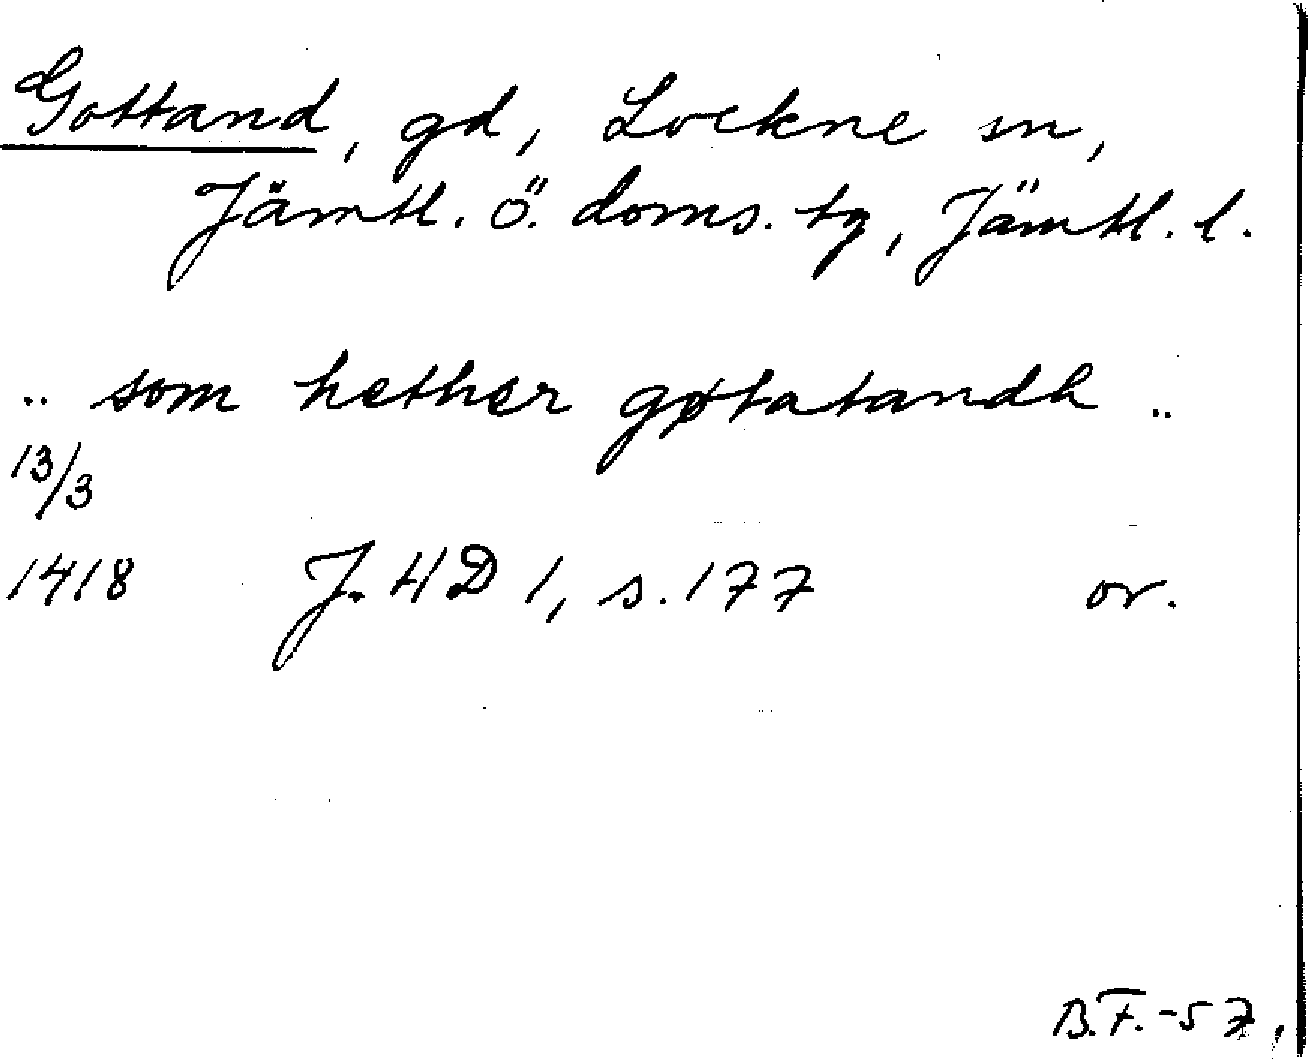 Gottand, gd, Lockne sn,
Jämtl. ö. doms. tg, Jämtl. l.
.. som hether gøtatandh ..
13/3
1418 J. HD 1, s. 177 or.
B.F.-57.